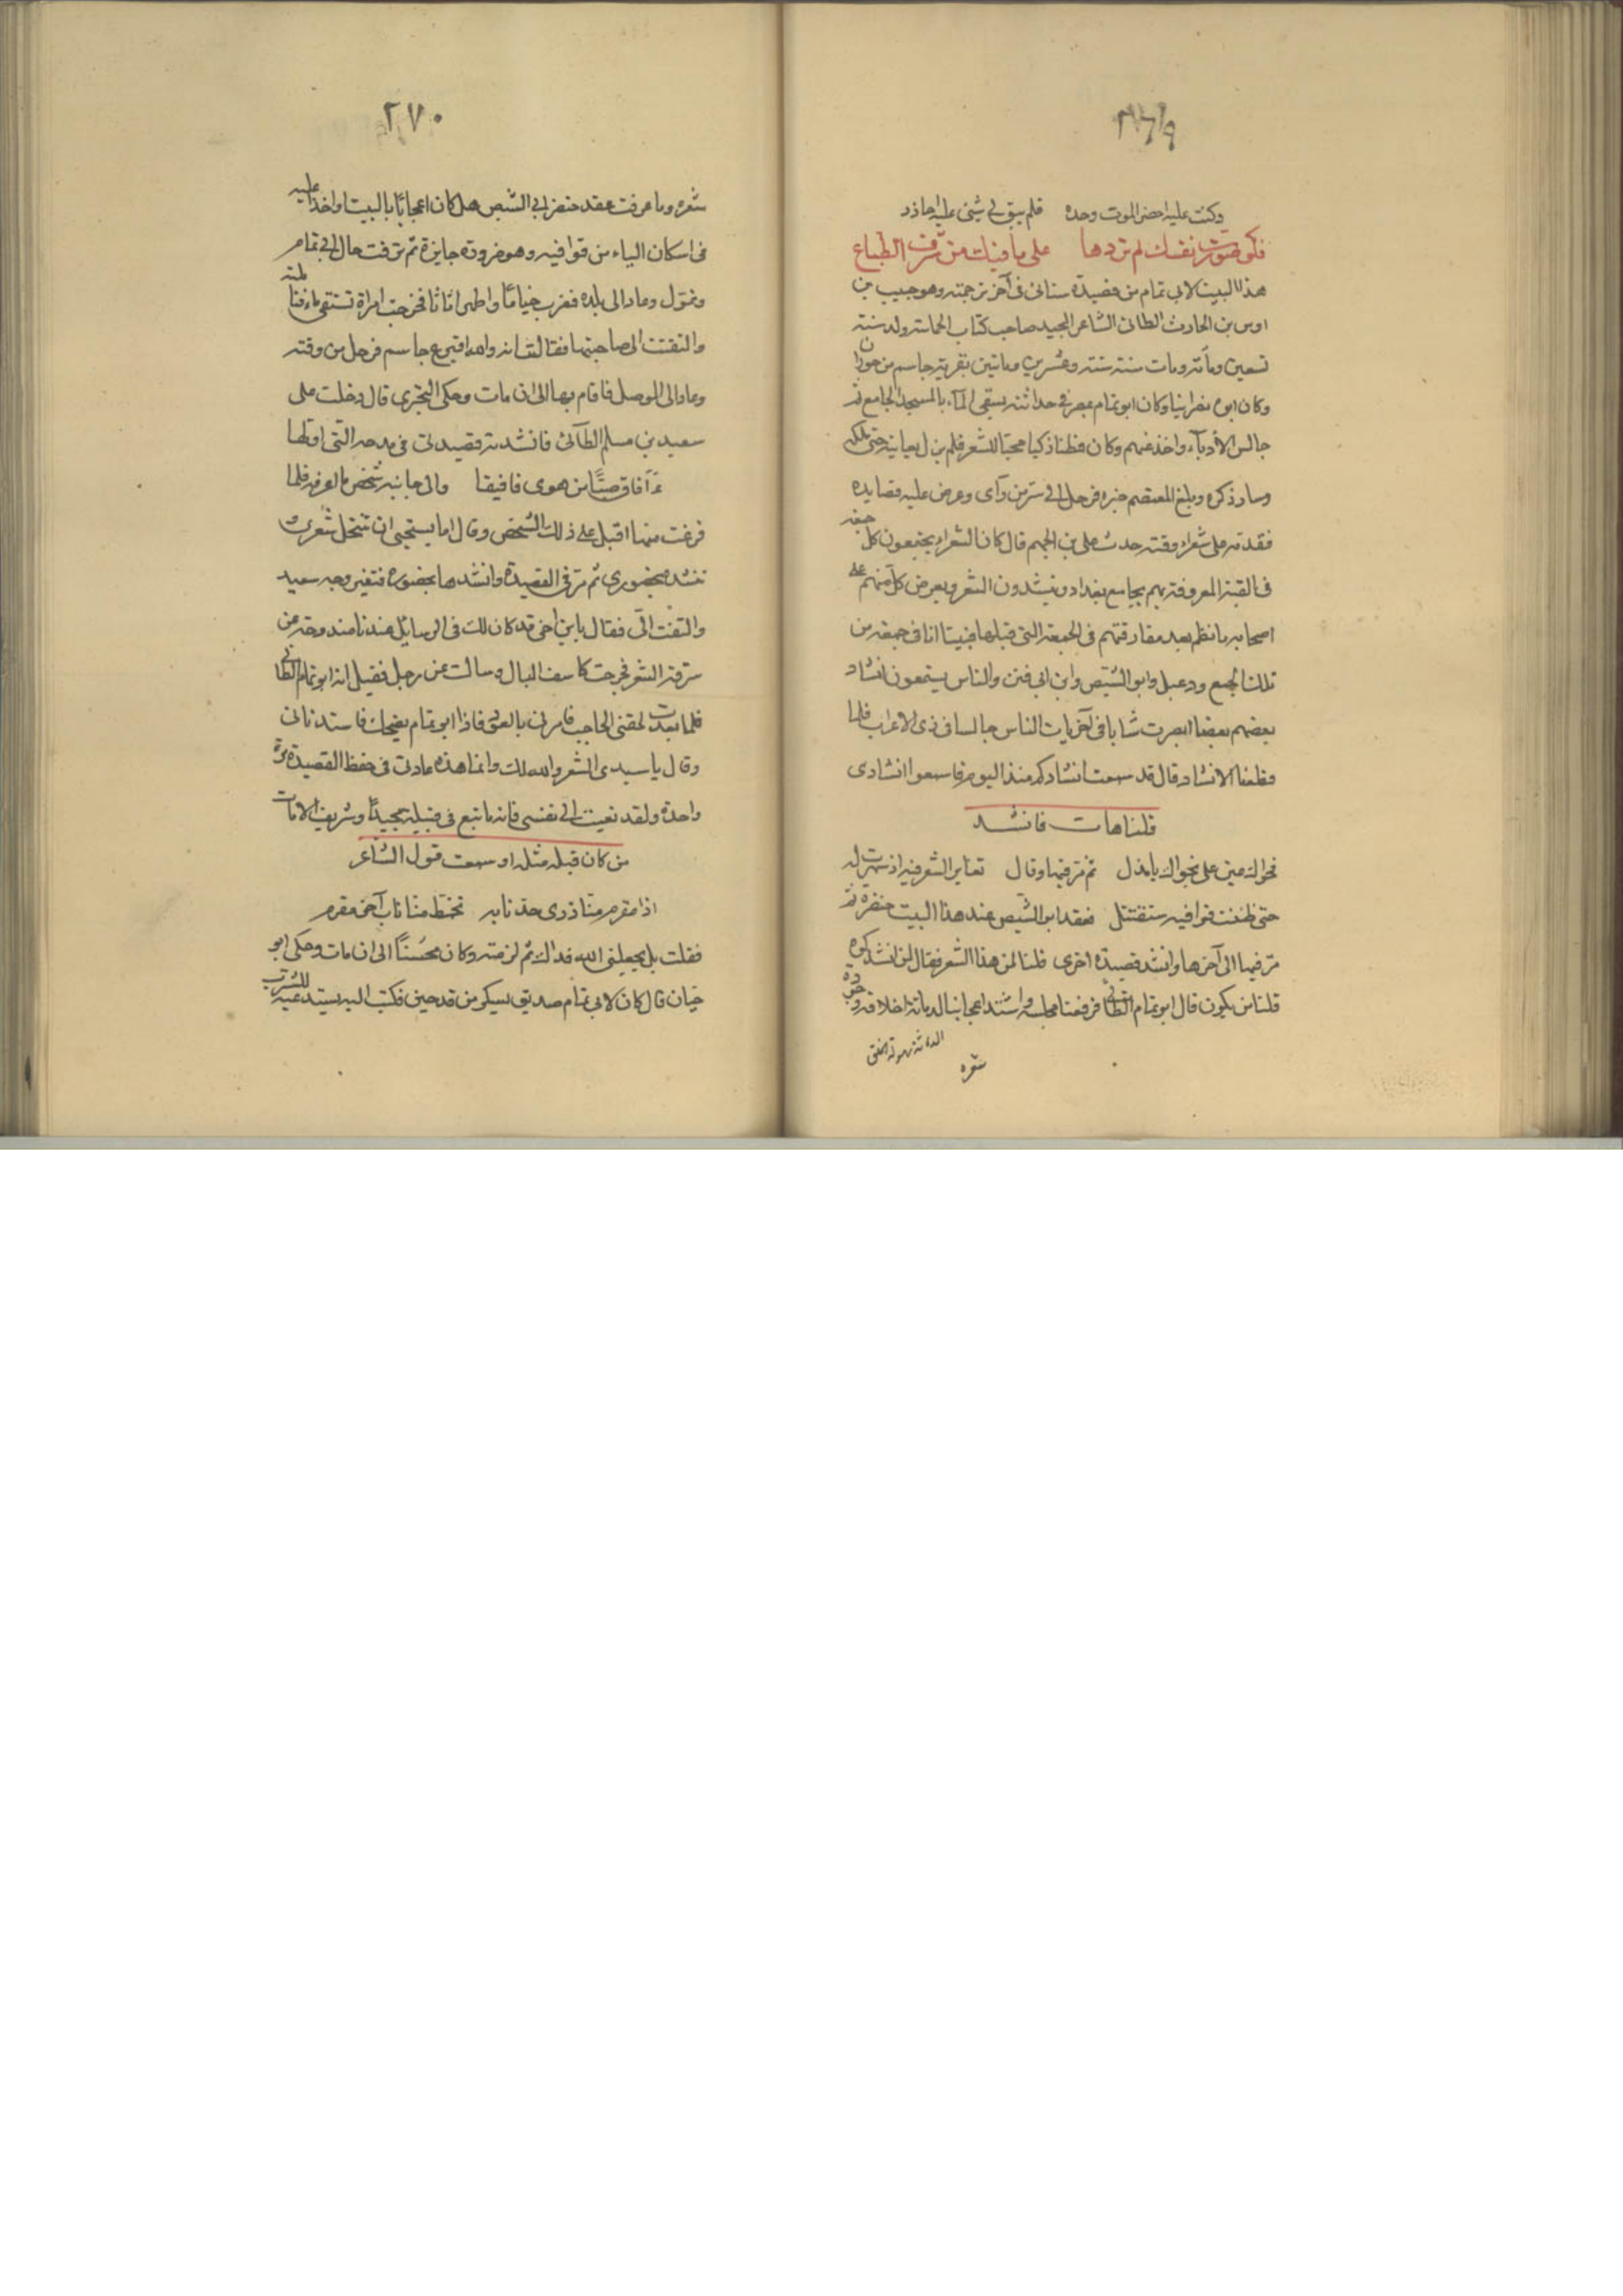 ٢٦٩
وكنت عليه احضر الموت وحده فلم يبق لي شئ عليه احاذر
فلو صورت نفسك لم تزدها على ما فيك من شرف الطباع
هذا البيت لابي تمام من قصيدة ستاتى فى آخر ترجمته وهو حبيب بن
اوس بن الحارث الطائى الشاعر المجيد صاحب كتاب الحماسة ولد سنة
تسعين ومأة ومات سنة ستة وعشرين وماتين بقرية جاسم من حوران
وكان ابوه نصرانيا وكان ابو تمام بمصر فى حداثته يسقى المآء بالمسجد الجامع ثم
جالس الأدبآء واخذ عنهم وكان فطنا ذكيا محبا للشعر فلم يزل يعانيه حتى ملكه
وسار ذكره وبلغ المعتصم خبره فرحل الى سر من رآى وعرض عليه قصايده
فقدمه على شعراء وقته حدث على بن الجهم قال كان الشعراء يجتمعون كل جمعة
فى القبة المعروفة بهم بجامع بغداد وينشدون الشعر ويعرض كل منهم على
اصحابه ما نظم بعد مفارقتهم فى الجمعة التى قبلها فبينا انا فى جمعة من
تلك الجمع ودعبل وابو الشيص وابن ابى فنن والناس يستمعون انشاد
بعضهم بعضا ابصرت شابا فى آخريات الناس جالسا فى زى الاعراب فلما
قطعنا الانشاد قال قد سمعت انشادكم منذ اليوم فاسمعوا انشادى
قلنا هات فانشد
فحواك عين على نجواك يا مذل ثم مر فيها وقال تغاير الشعر فيه اذ سهرت له
حتى ظننت قوافيه ستقتتل فعقد ابو الشيص عند هذا البيت خنصره ثم
مر فيها الى آخرها وانشد قصيدة اخرى قلنا لمن هذا الشعر فقال لمن انشدكموه
قلنا من يكون قال ابو تمام الطائى فرفعنا مجلسه واشتد اعجابنا لدماثة اخلاقه وجودة
الدماثة سهولة الخلق
شعره
٢٧٠
شعره وما عرفت عقد خنصر ابي الشيص هل كان اعجابا بالبيت او اخذا عليه
فى اسكان الياء من قوافيه وهو ضرورة جايزة ثم ترقت حال ابي تمام
وتمول وعاد الى بلده فضرب خياما واظهر اثاثا فخرجت امراة تستقى ماء
والتفتت الى صاحبتها فقالت
وعاد الى الموصل فاقام بها الى ان مات وحكى البحترى قال دخلت على
سعيد بن مسلم الطآئى فانشدته قصيدتى فى مدحه التى اولها
ءآفاق صبٌّ من هوى فافيقا والى جانبه شخص ما اعرفه فلما
فرغت منها اقبل على ذلك الشخص وقال اما يستحيى ان تنتحل شعرى و
تنشده بحضورى ثم مر فى القصيدة وانشدها بحضوره فتغير وجه سعيد
والتفت الىّ فقال يا ابن اخى قد كان لك فى الوسايل عندنا مندوحة عن
سرقة الشعر فخرجت كاسف البال وسالت عن رجل فقيل انه ابو تمام الطائى
فلما بعدت لحقنى الحاجب فامرنى بالعود فاذا ابو تمام يضحك فاستدنانى
وقال يا سيدى الشعر والله لك وانما هذه عادتى فى حفظ القصيدة مرة
واحدة ولقد نعيت الى نفسى فانه ما نبع فى قبيلة مجيدٌ وشريف الا مات
من كان قبله مثله او سمعت قول الشاعر
اذا مقرم منا ذرى حد نابه تخمط منا ناب آخر مقرم
فقلت بل يجعلنى الله فداك ثم لزمته وكان محسنًا الى ان مات وحكى ابو
حيان قال كان لابى تمام صديق يسكر من قدحين فكتب اليه يستدعيه للشرب